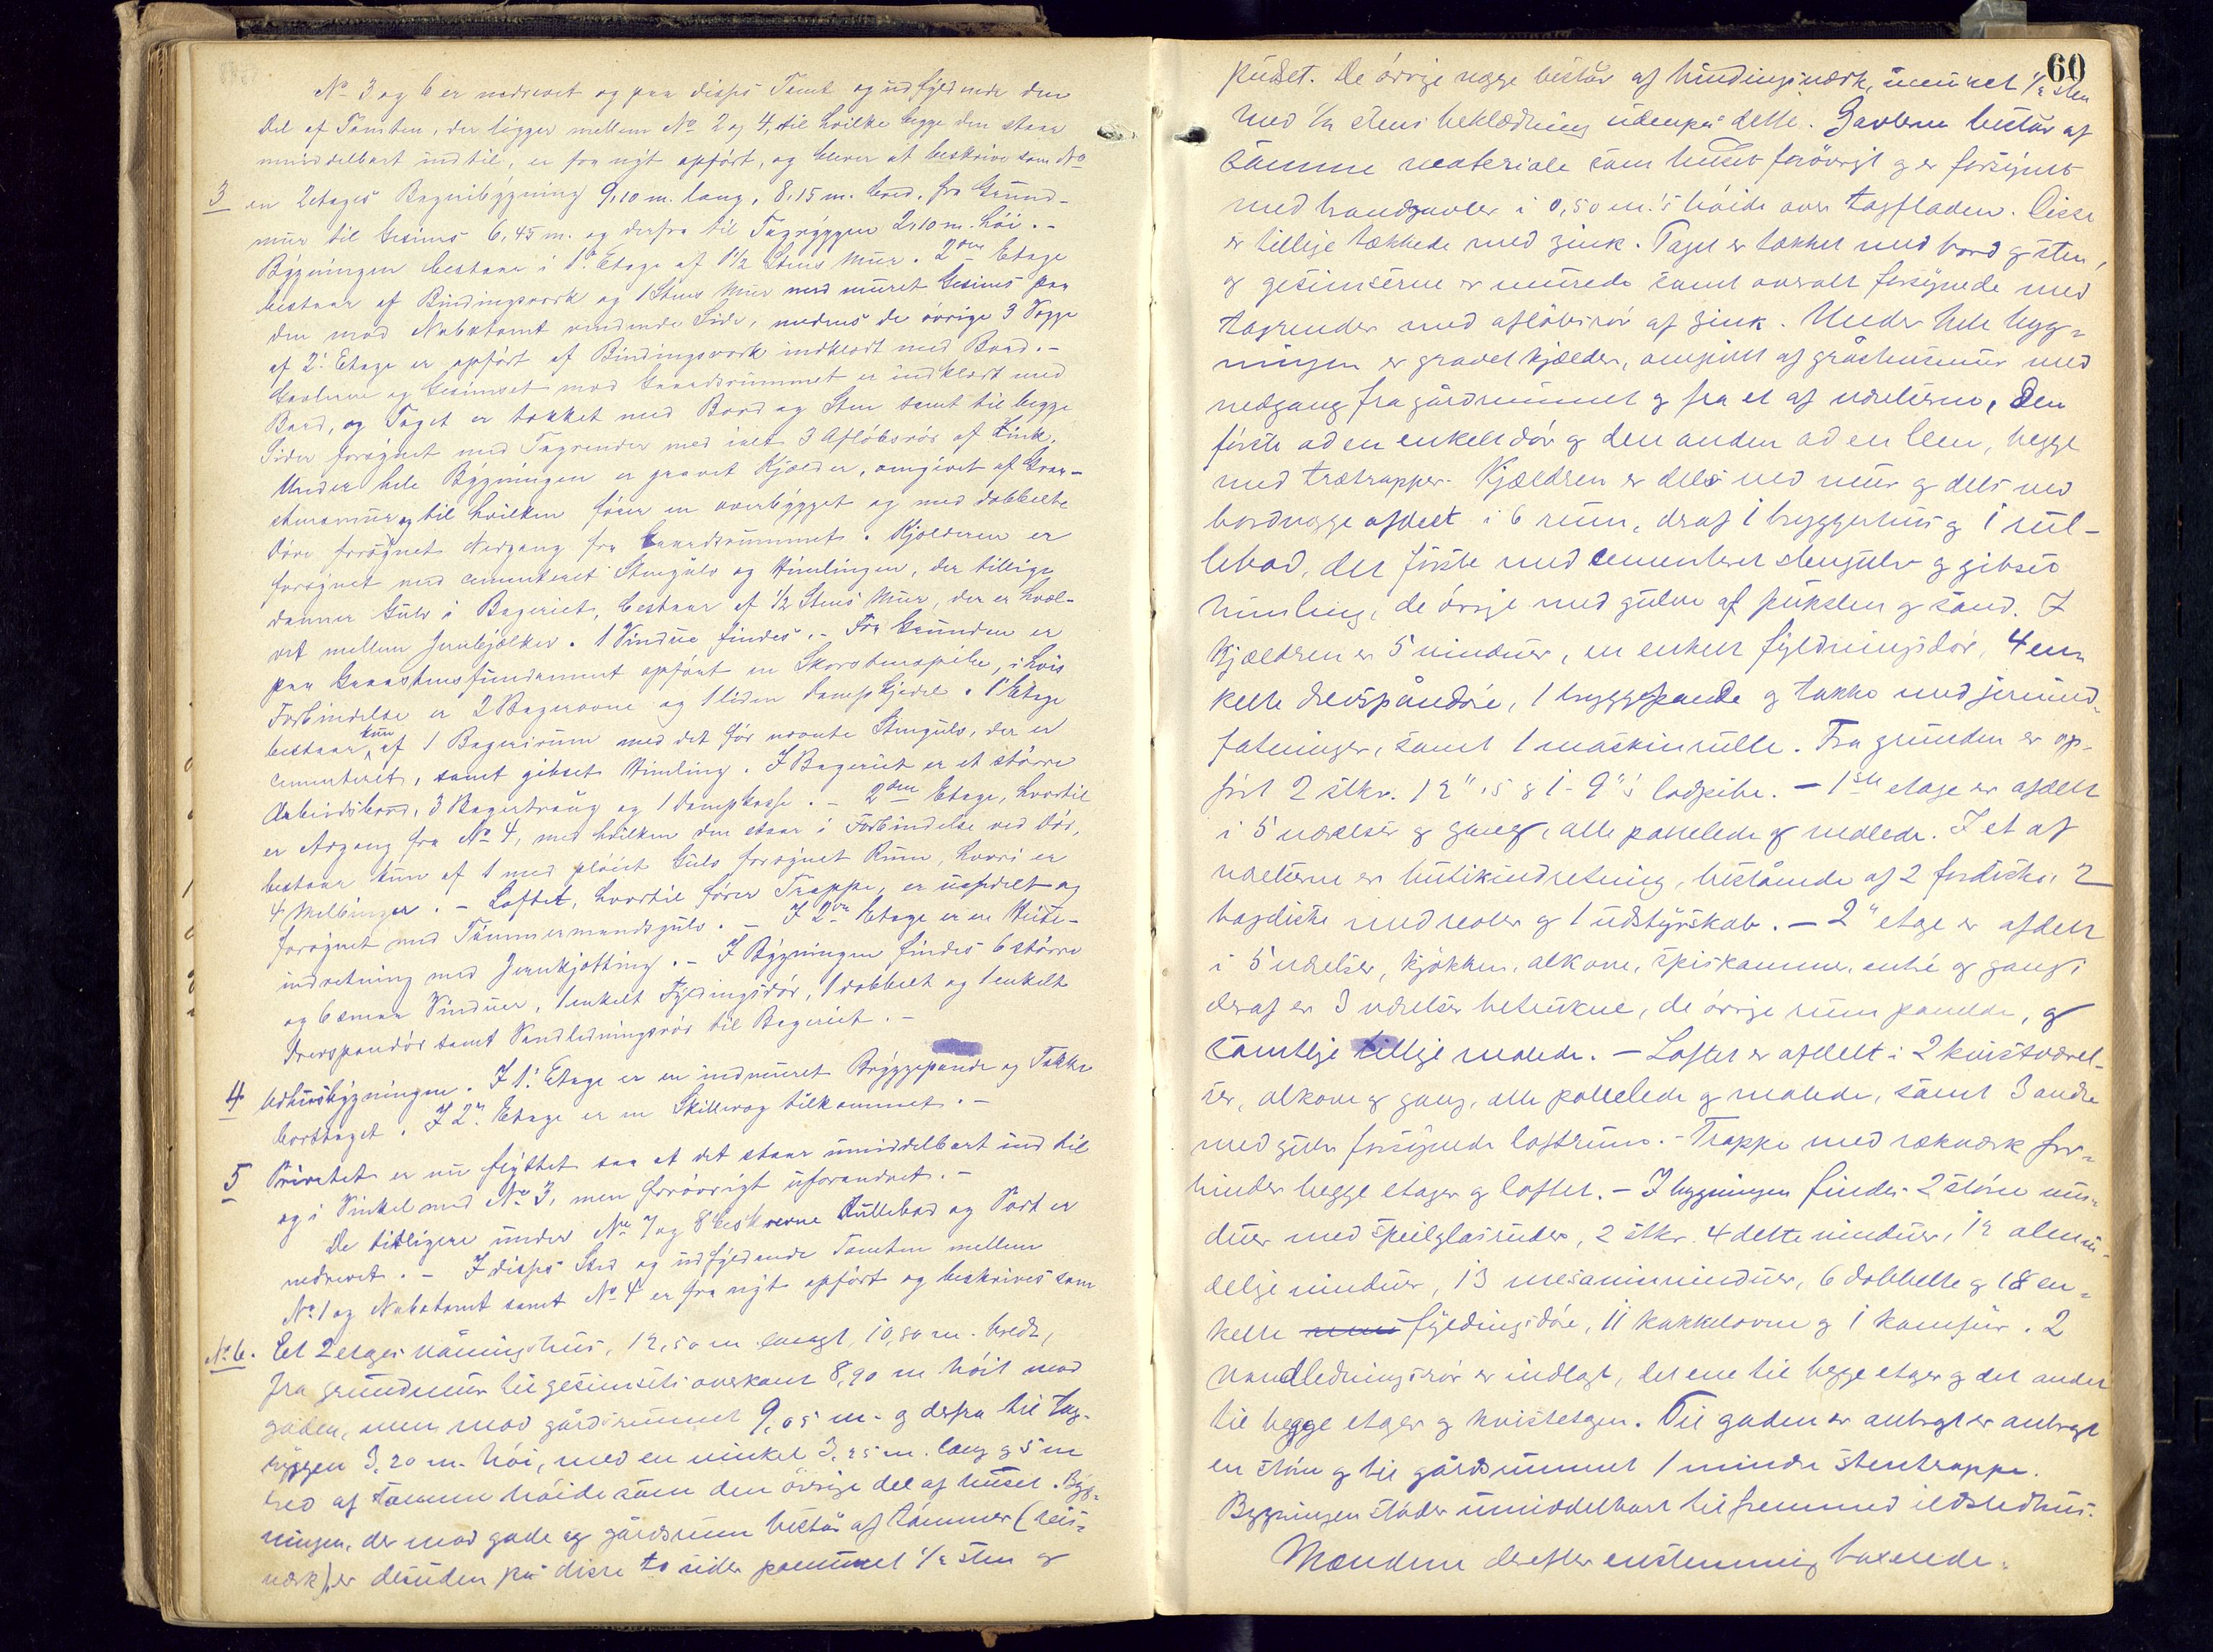 No 3 og 6 er nedrevet og paa disses Tomt og udfyldende den
Del af Tomten, der ligger mellem No 2 og 4, til hvilke begge den staar
umiddelbart indtil, er fra nyt opført, og bliver at beskrive som No
3 en 2etages Bageribygning 9,10 m. lang, 8,15 m. bred, fra Grund-
mur til Gesims 6,45 m. og derfra til Tagryggen 2,10 m. høi. -
Bygningen bestaar i 1ste Etage af 1 1/2 Stens Mur. 2den Etage
bestaar af Bindingsverk og 1 Stens Mur med muret Gesims paa
den mod Nabotomt vendende Side, medens de øvrige 3 Vægge
af 2. Etage er opført af Bindingsverk indklædt med Bord. -
Gavlerne og Gesimset mod Gaardsrummet er indklædt med
Bord, og Taget er tækket med Bord og Sten samt til begge
Sider forsynet med Tagrender med ialt 3 Afløbsrør af Zink.
Under hele Bygningen er gravet Kjælder, omgivet af Graa-
stensmur og til hvilken fører en overbygget og med dobbelte
Døre forsynet Nedgang fra Gaardsrummet. Kjælderen er
forsynet med cementeret Stengulv og Himlingen, der tillige
danner Gulv i Bageriet, bestaar af 1/2 Stens Mur, der er hvæl-
vet mellem Jernbjælker. 1 Vindue findes. - Fra Grunden er
paa Graastensfundament opført en Skorstenspibe, i hvis
Forbindelse er 2 Bagerovne og 1 liden Dampkjedel. 1' Etage
bestaar kun af 1 Bagerirum med det før nævnte Stengulv, der er
cementeret, samt gibset Himling. I Bageriet er et større
Arbeidsbord, 3 Bagertraug og 1 Dampkasse. - 2den Etage, hvortil
er Adgang fra No 4, med hvilken den staar i Forbindelse ved Dør,
bestaar kun af 1 med pløiet Gulv forsynet Rum, hvori er
4 Melbinger. - Loftet, hvortil fører Trappe, er uafdelt og
forsynet med Tømmermandsgulv. - I 2den Etage er en Heise-
indretning med Jernkjætting. - I Bygningen findes 6 større
og 6 smaa Vinduer, 1 enkelt Fyldingsdør, 1 dobbelt og 1 enkelt
Drevspandør samt Vandledningsrør til Bageriet. -
4 Udhusbygningen. I 1' Etage er en indmuret Bryggepande og Takke
borttaget. I 2' Etage er en Skillevæg tilkommet. -
5 Privetet er nu flyttet saa at det staar umiddelbart ind til
og i Vinkel med No 3, men forøvrigt uforandret. -
De tidligere under No 7 og 8 beskrevne Rullebod og Port er
nedrevet. - I disses Sted og udfyldende Tomten mellem
No 1 og Nabotomt samt No 4 er fra nyt opført og beskrives som
No 6. Et 2 etages våningshus, 12,50 m langt, 10,80 m. bredt,
fra grundmur til gesimsets overkant 8,90 m høit mod
gaden, men mod gårdsrummet 9,05 m. og derfra til tag-
ryggen 3,20 m. høi, med en vinkel 3,25 m. lang og 5 m
bred af samme høide som den øvrige del af huset. Byg-
ningen, der mod gade og gårdsrum består af tømmer (reis-
værk), er desuden på disse to sider påmuret 1/2 sten og
60
pudset. De øvrige vægge består af bindingsværk, inmuret 1/2 sten
med 1/2 stens beklædning udenpå dette. Gavlerne består af
samme materiale som huset forøvrigt og er forsynet
med brandgavler i 0,50 m.'s høide over tagfladen. Disse
er tillige tækkede med zink. Taget er tækket med bord og sten,
og gesimserne er murede samt overalt forsynede med
tagrender med afløbsrør af zink. Under hele byg-
ningen er gravet kjælder, omgivet af gråstensmur med
nedgang fra gårdrummet og fra et af værelserne, den
første ad en enkelt dør og den anden ad en lem, begge
med trætrapper. Kjælderen er dels ved mur og dels ved
bordvægge afdelt i 6 rum, deraf 1 bryggerhus og 1 rul-
lebod, det første med cementeret stengulv og gibset
himling, de øvrige med gulve af puksten og sand. I
kjælderen er 5 vinduer, en enkelt fyldningsdør, 4 en-
kelte drevspåndøre, 1 bryggepande og takke med jernind-
fatninger, samt 1 maskinrulle. Fra grunden er op-
ført 2 stkr. 12"'s og 1 - 9"'s lodpibe. - 1ste etage er afdelt
i 5 værelser og gang, alle panelede og malede. I et af
værelserne er butikindretning, bestående af 2 fordiske, 2
bagdiske med reoler og 1 udstyrskab. - 2' etage er afdelt
i 5 værelser, kjøkken, alkove, spiskammer, entré og gang,
deraf er 3 værelser betrukne, de øvrige rum panelede, og
samtlige tillige malede. - Loftet er afdelt i 2 kvistværel-
ser, alkove og gang, alle panelede og malede, samt 3 andre
med gulv forsynede loftsrum. - Trappe med rækværk for-
binder begge etager og loftet. - I bygningen findes 2 større vin-
duer med speilglasruder, 2 stkr. 4 delte vinduer, 12 almin-
delige vinduer, 13 mesaninvinduer, 6 dobbelte og 18 en-
kelte fyldingsdøre, 11 kakkelovne og 1 komfur. 2
vandledningsrør er indlagt, det ene til begge etager og det andet
til begge etager og kvistetagen. Til gaden er anbragt er anbragt
en større og til gårdsrummet 1 mindre stentrappe.
Bygningen støder umiddelbart til fremmed ildstedhus.
Mændene derefter enstemmig taxerede: